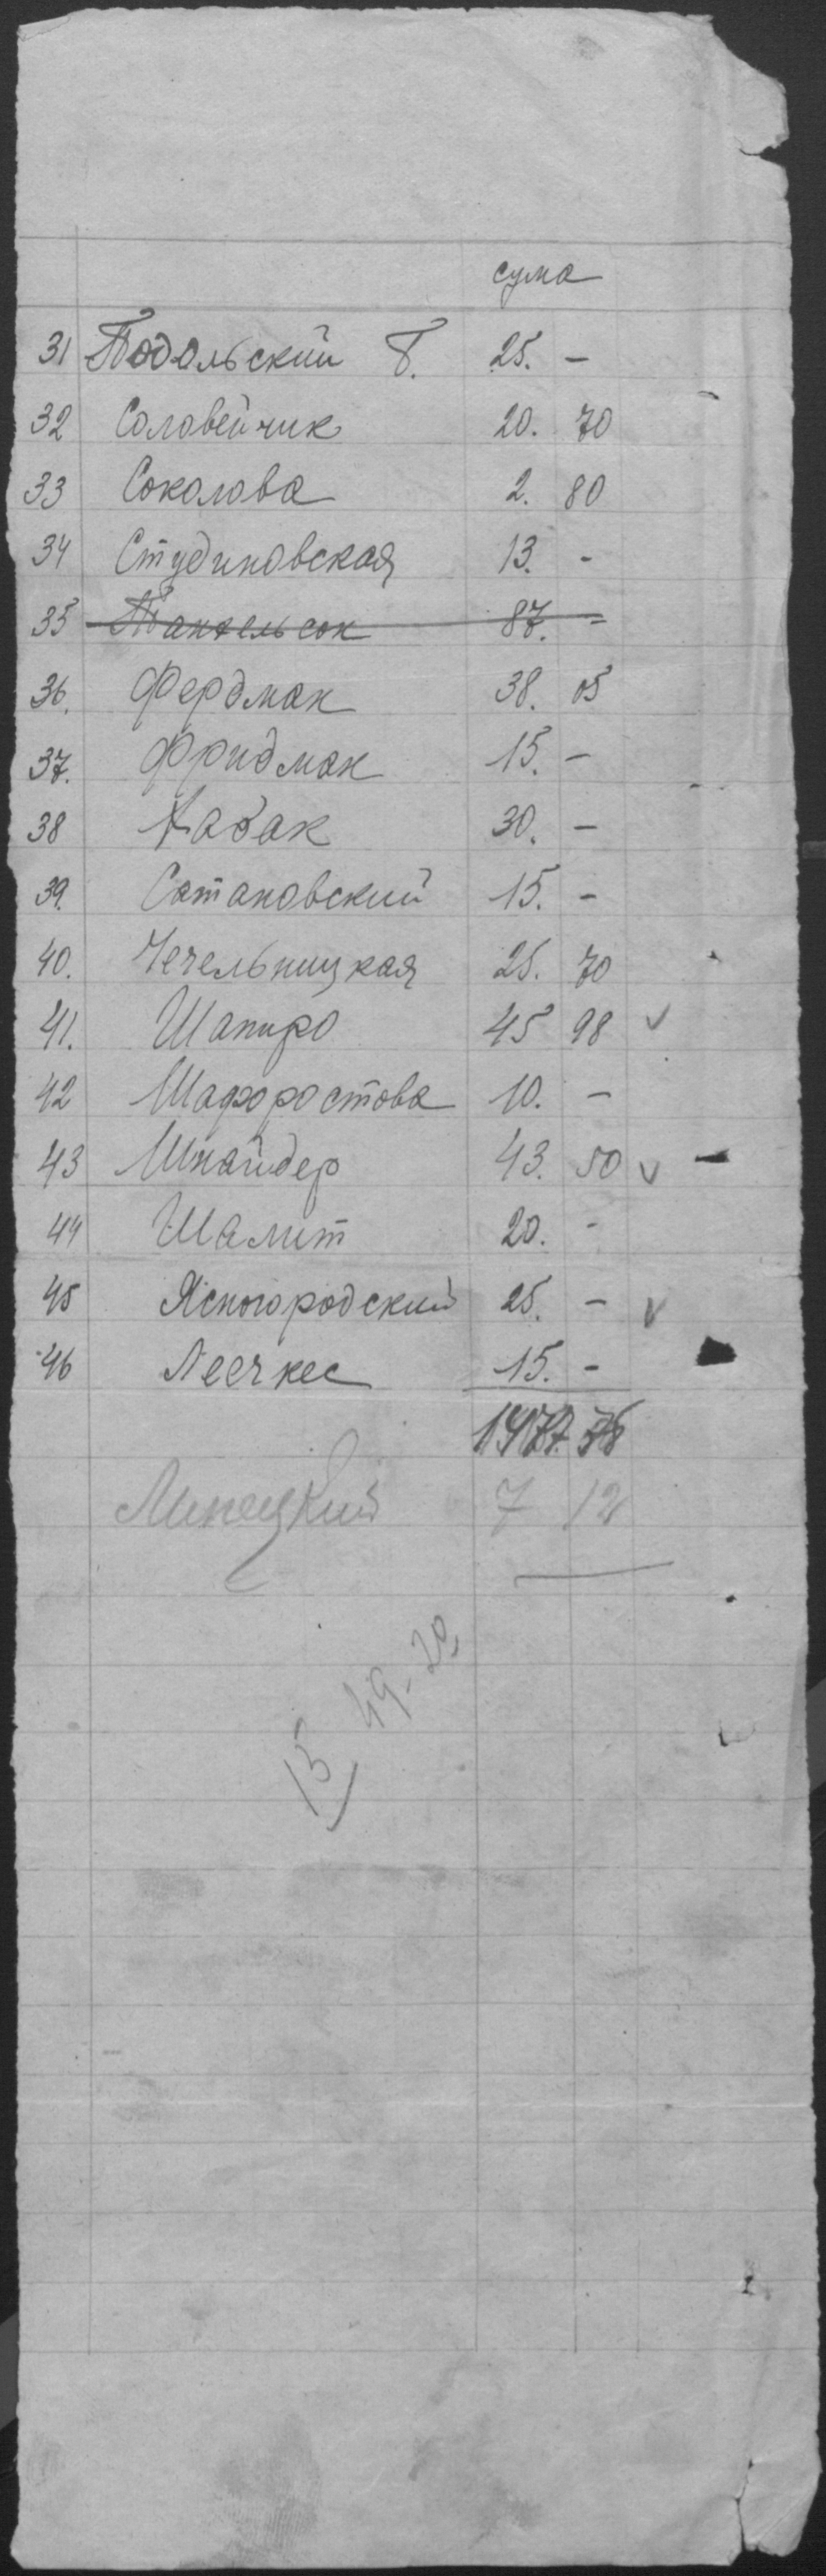 сума
31 Подольский Б. 25. –
32 Соловейчик 20. 70
33 Соколова 2. 80
34 Студиновская 13. –
35 87. –
36. Фердман 38. 05
37. Фридман 15. –
38 Хабак 30. –
39. Сатановский 15. –
40. Чечельницкая 25. 70
41. Шапиро 45 98 v
42 Шафоростова 10. –
43 Шнайдер 43. 50 v –
44 Шалит 20. -
45 Ясногородский 25. – v
46 Леечкес 15. –
Линецкий 7 12
15 49-20